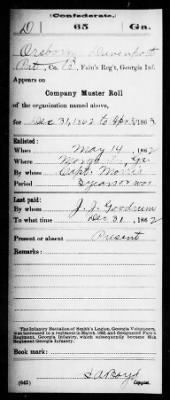 (Confederate.)
D 65 Ga.
Osborn Davenport
Pvt., Co. D, Fain's Reg't, Georgia Inf.
Appears on
Company Muster Roll
of the organization named above,
for Dec 31, 1862 to Apr 30, 1863
Enlisted:
When May 14, 1862
Where Ga
By whom Capt. Morris
Period 3 years or war
Last paid:
By whom J. J. Goodrum
To what time Dec 31, 1862
Present or absent Present
Remarks:
The Infantry Battalion of Smith's Legion, Georgia Volunteers,
was increased to a regiment in March, 1863, and designated Fain's
Regiment, Georgia Infantry, which subsequently became the 65th
Regiment Georgia Infantry.
Book mark:
S A Boyd
(642) Copyist.